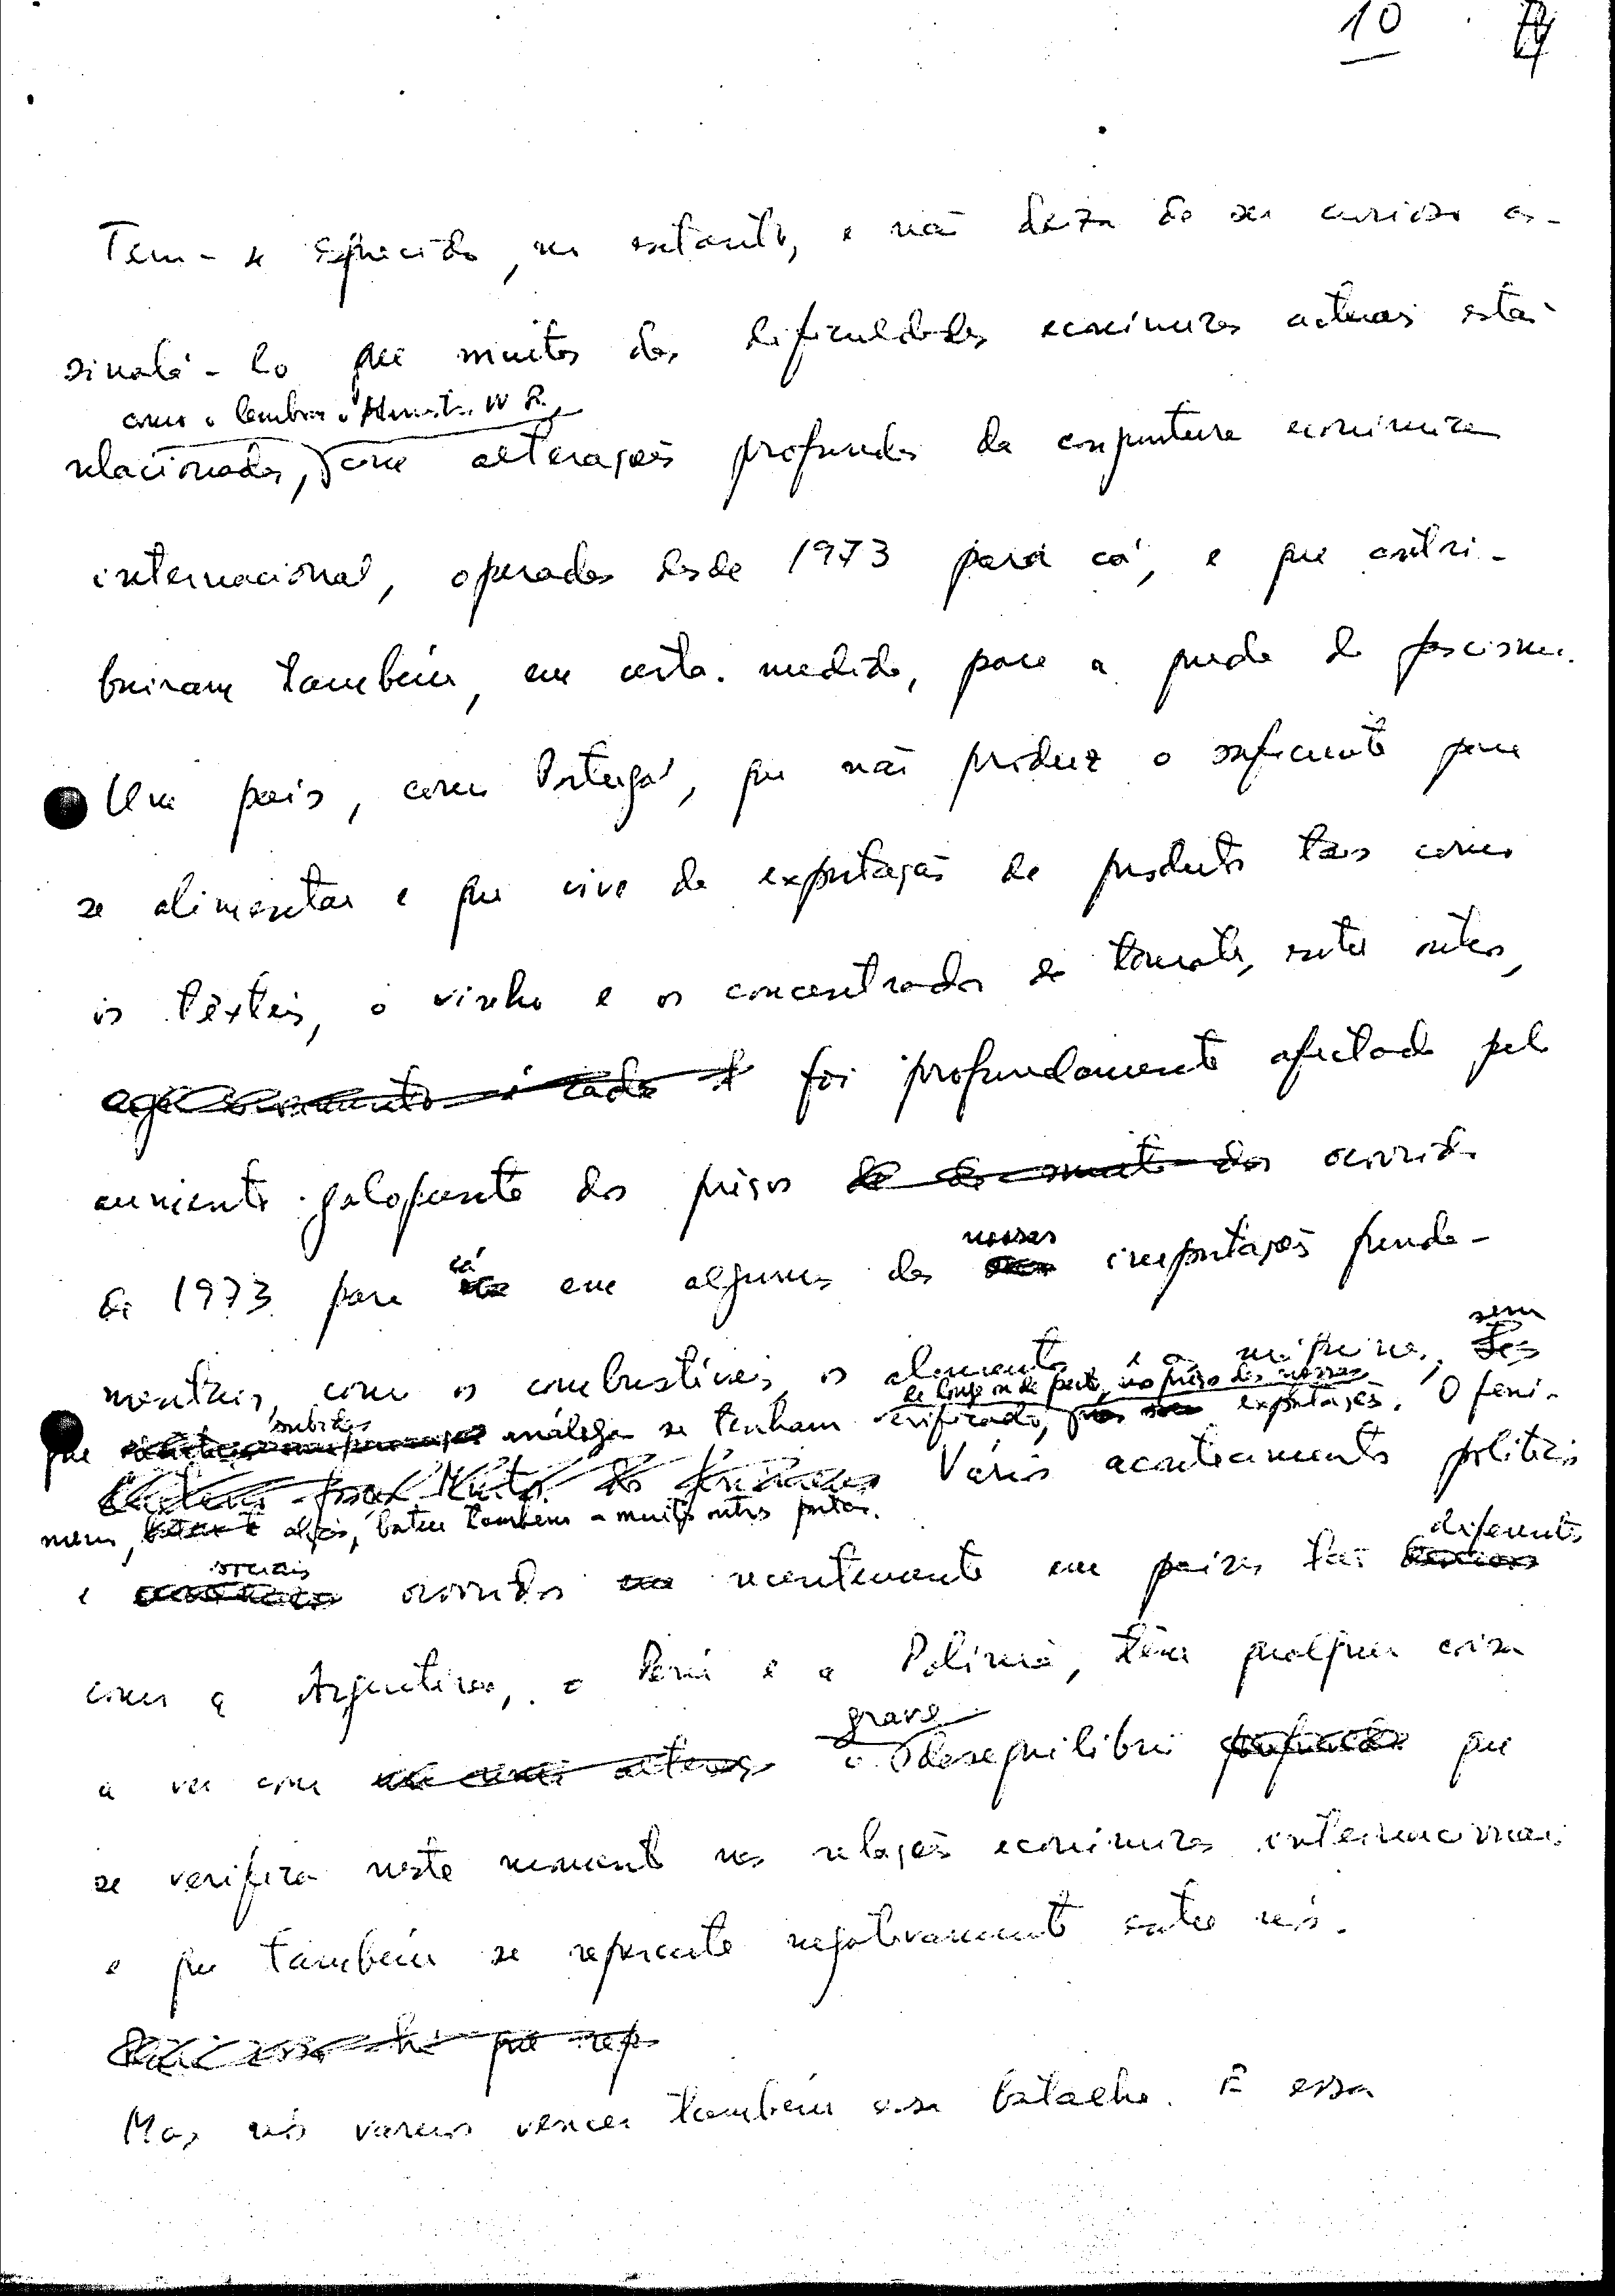 10
Tem-se esquecido, no entanto, e não deixa de ser curioso as-
sinalá-lo que muitas das dificuldades económicas actuais estão
como o lembrou o Ministro W R.,
relacionadas, com alterações profundas da conjuntura económica
internacional, operadas desde 1973 para cá, e que contri-
buiram também, em certa medida, para a queda do fascismo.
Um país, como Portugal, que não produz o suficiente para
se alimentar e que vive da exportação de produtos tais como
os têxteis, o vinho e os concentrados de tomate, entre outros,
foi profundamente afectado pelo
aumento galopante dos preços ocorrido
de 1973 para cá em algumas das nossas importações funda-
mentais, como os combustíveis, os alimentos e a maquinaria, sem
que subidas análogas se tenham verificado, de longe ou de perto, no preço das nossas exportações. O fenó-
meno, aliás, bateu também a muitas outras portas.
Vários acontecimentos políticos
e sociais ocorridos recentemente em países tão diferentes
como a Argentina, o Perú e a Polónia, têm qualquer coisa
a ver com o grave desequilíbrio que
se verifica neste momento nas relações económicas internacionais
e que também se repercute negativamente entre nós.
Mas nós vamos vencer também essa batalha. É essa